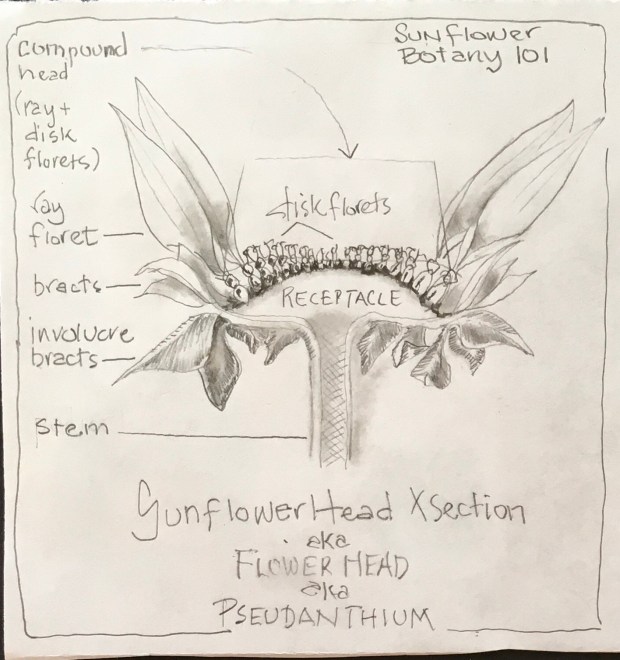 Sunflower
Botany 101
compound
head
(ray +
disk
florets)
ray
floret
bracts
involucre
bracts
stem
disk florets
RECEPTACLE
Sunflower Head X Section
aka
FLOWER HEAD
aka
PSEUDANTHIUM